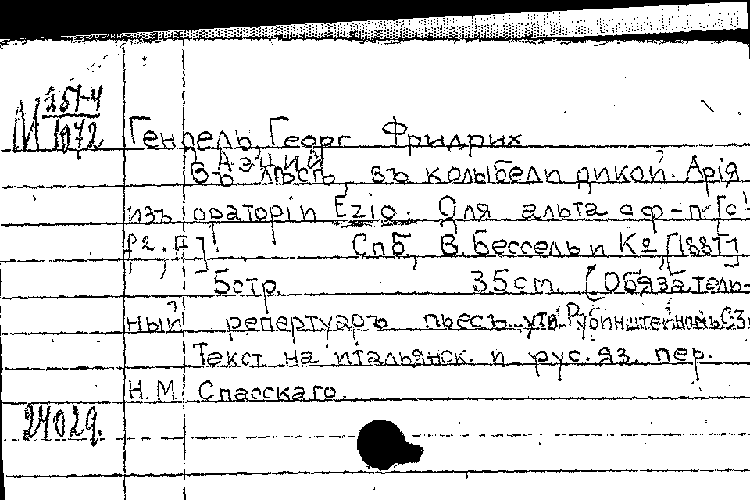 М 257-4
1072
Гендель, Георг Фридрих
[Аэций]
Въ лѣсъ, въ колыбели дикой. Арія
изъ ораторіи Ezio. Для альта с ф-п [c!
f2. F]! Спб, В. Бессель и К⁰, [1887]
5 стр. 35 cm. (Обязатель-
ный репертуаръ пьесъ утв. Рубинштейномъ С.З.
Текст на итальянск. и рус. яз. пер.
Н. М. Спасскаго.
24029.